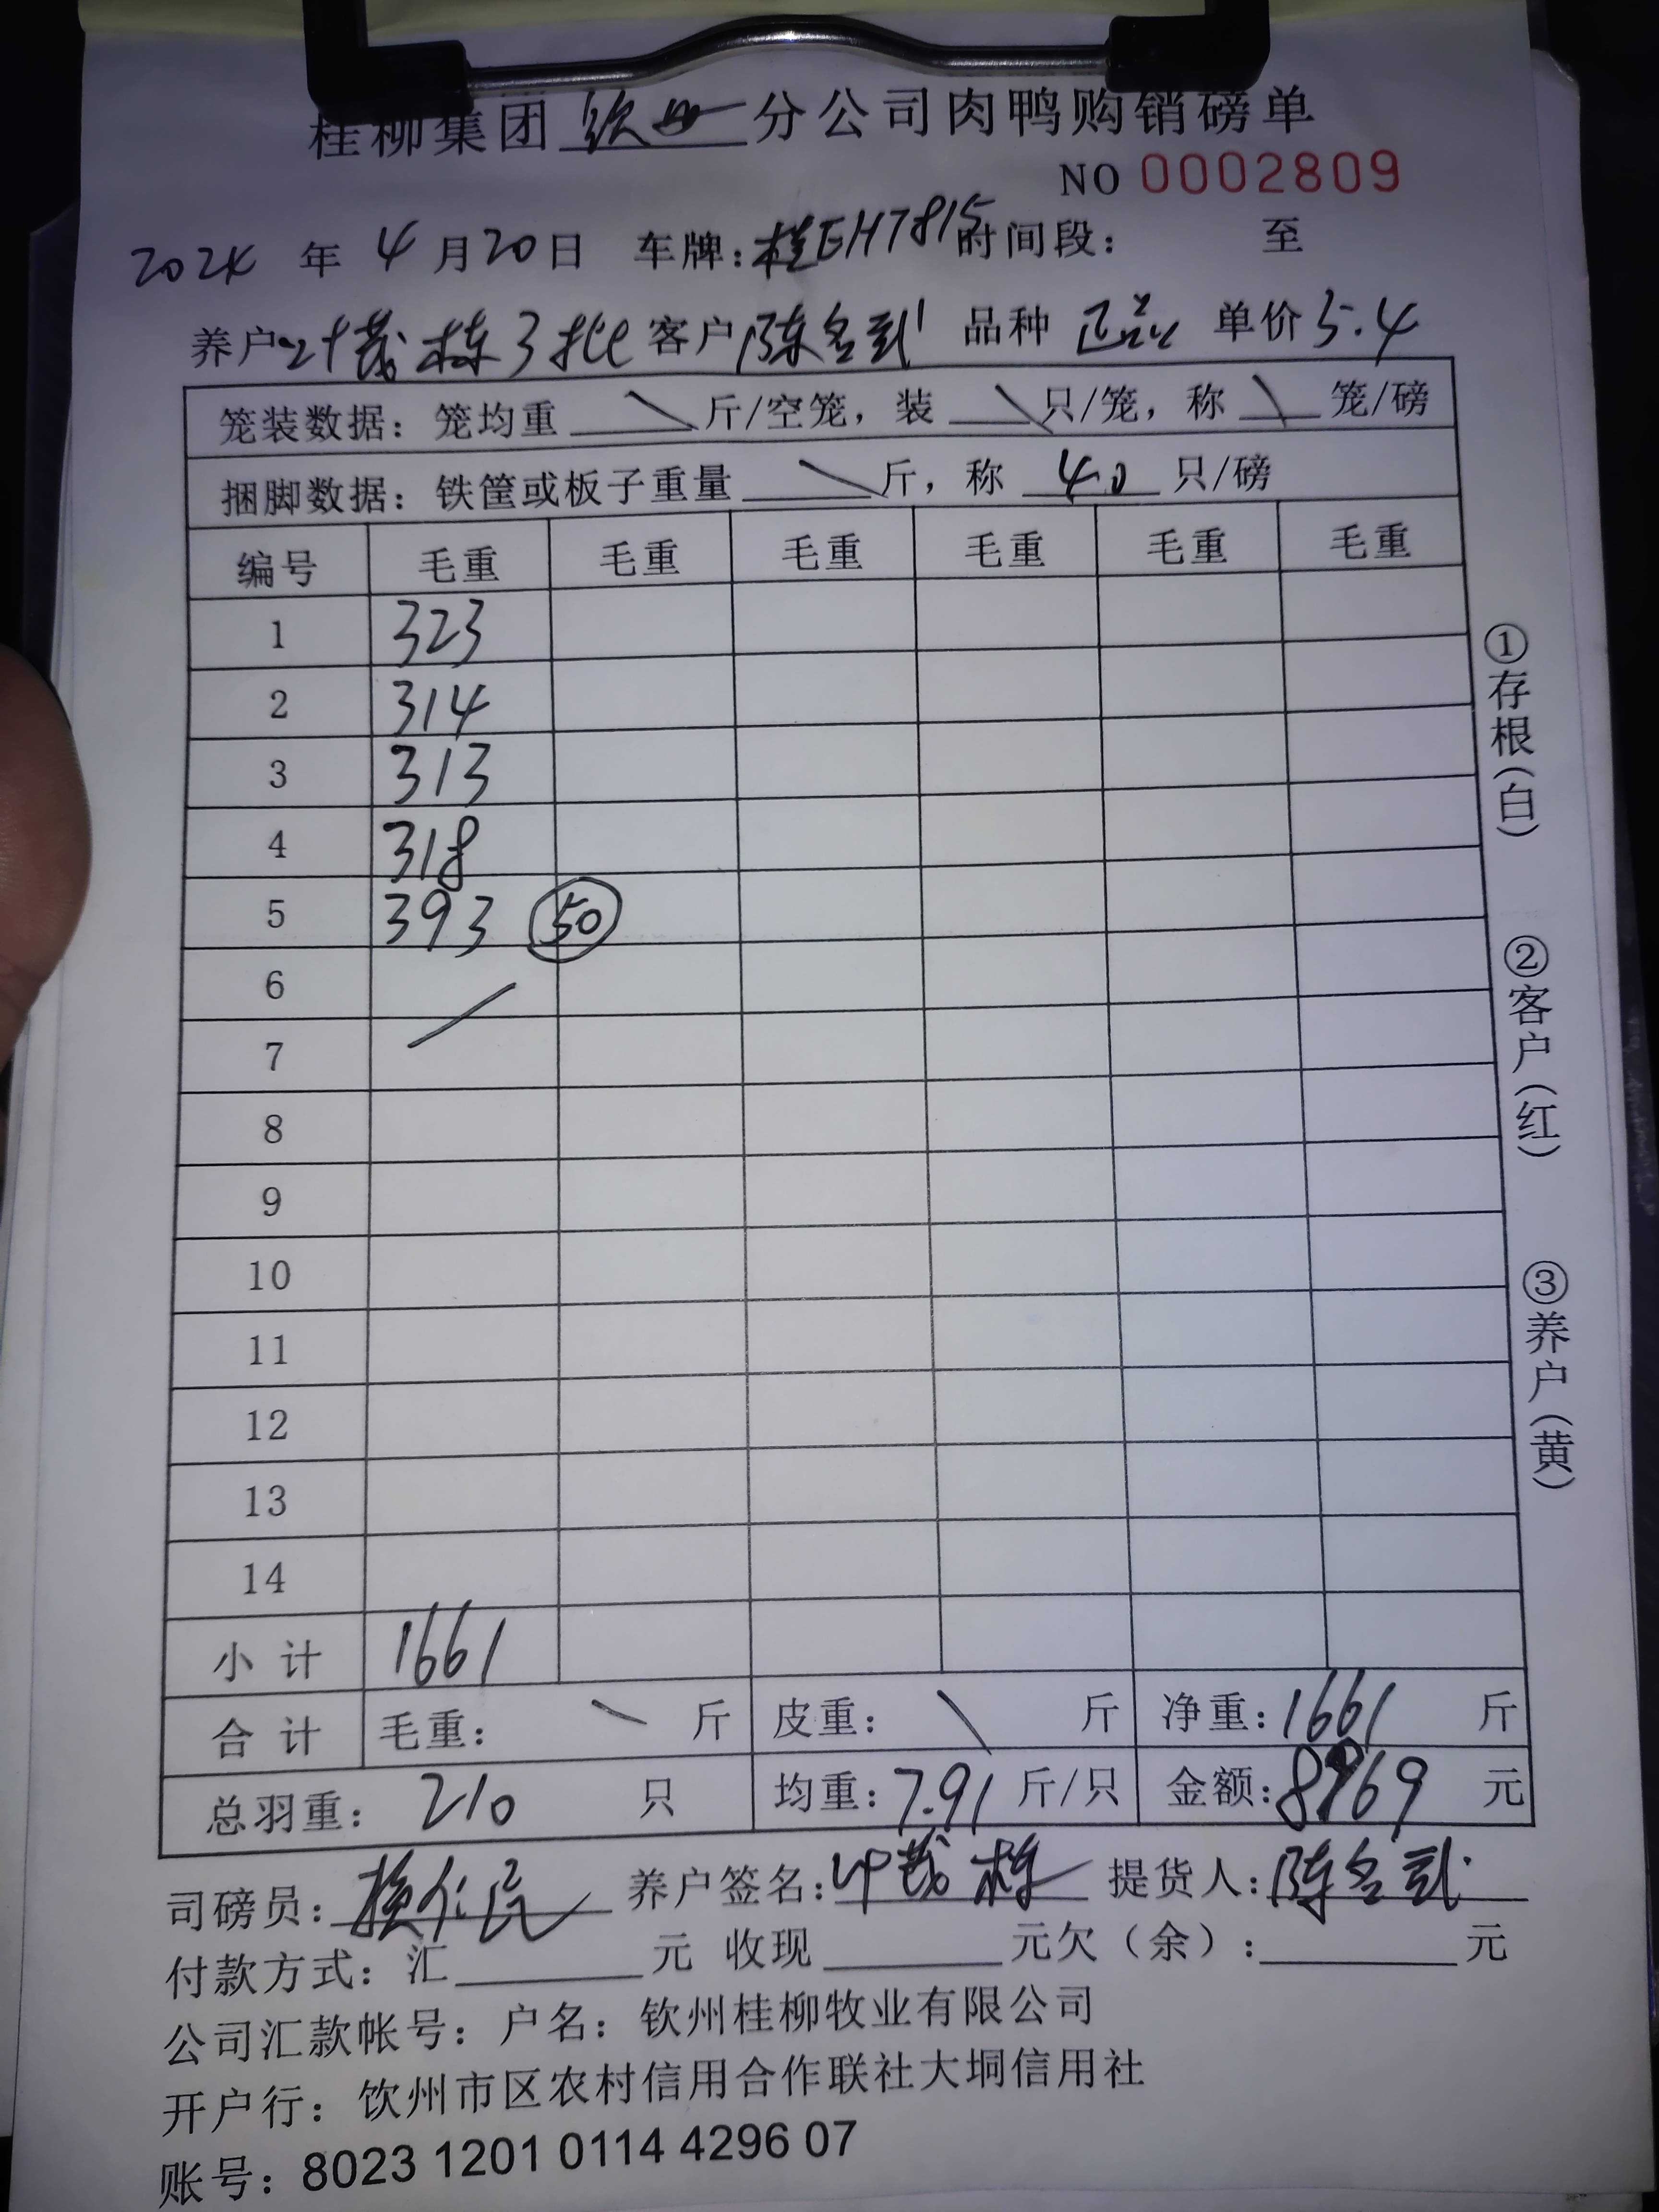 桂柳集团 钦州 分公司肉鸭购销磅单
NO 0002809
2024 年 4 月 20 日 车牌：桂EH7815 时间段： 至
养户 叶茂栋3批 客户 陈名武 品种 正品 单价 5.4
笼装数据：笼均重 \ 斤/空笼，装 \ 只/笼，称 \ 笼/磅
捆脚数据：铁筐或板子重量 \ 斤，称 40 只/磅
编号 毛重 毛重 毛重 毛重 毛重 毛重
1 323
2 314
3 313
4 318
5 393 50
6
7
8
9
10
11
12
13
14
小 计 1661
合 计 毛重： \ 斤 皮重： \ 斤 净重：1661 斤
总羽重： 210 只 均重：7.91 斤/只 金额：8969 元
司磅员： 养户签名：叶茂栋 提货人：陈名武
付款方式：汇 元 收现 元欠（余）： 元
公司汇款帐号：户名：钦州桂柳牧业有限公司
开户行：钦州市区农村信用合作联社大垌信用社
账号：8023 1201 0114 4296 07
①存根（白）
②客户（红）
③养户（黄）